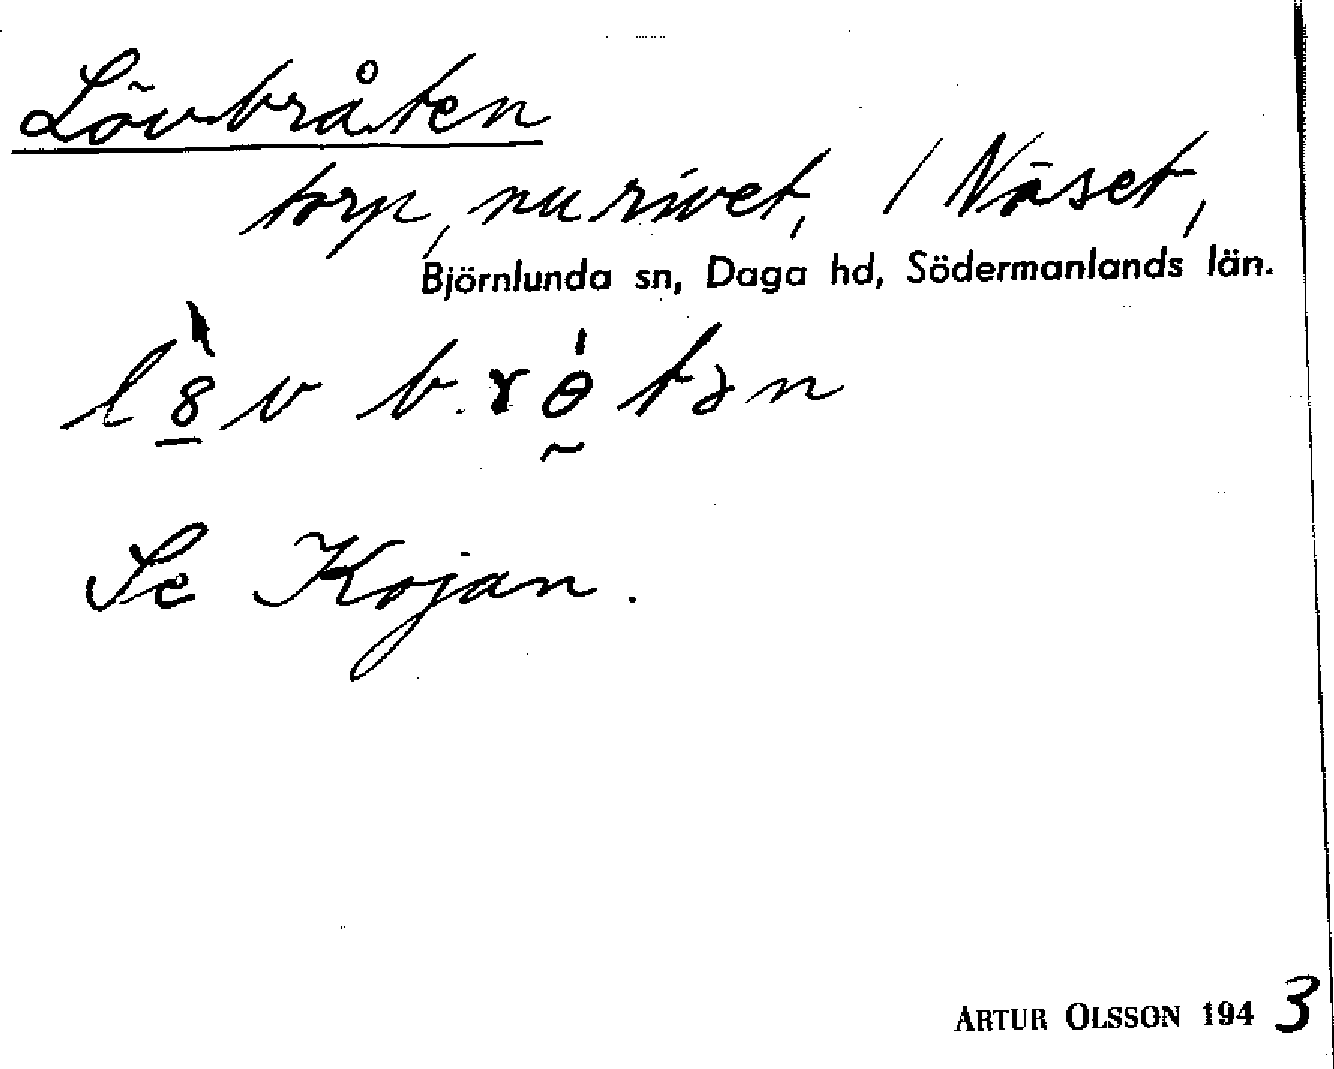 Lövbråten
torp, nu rivet, / Näset,
Björnlunda sn, Daga hd, Södermanlands län.
Se Kojan.
ARTUR OLSSON 1943